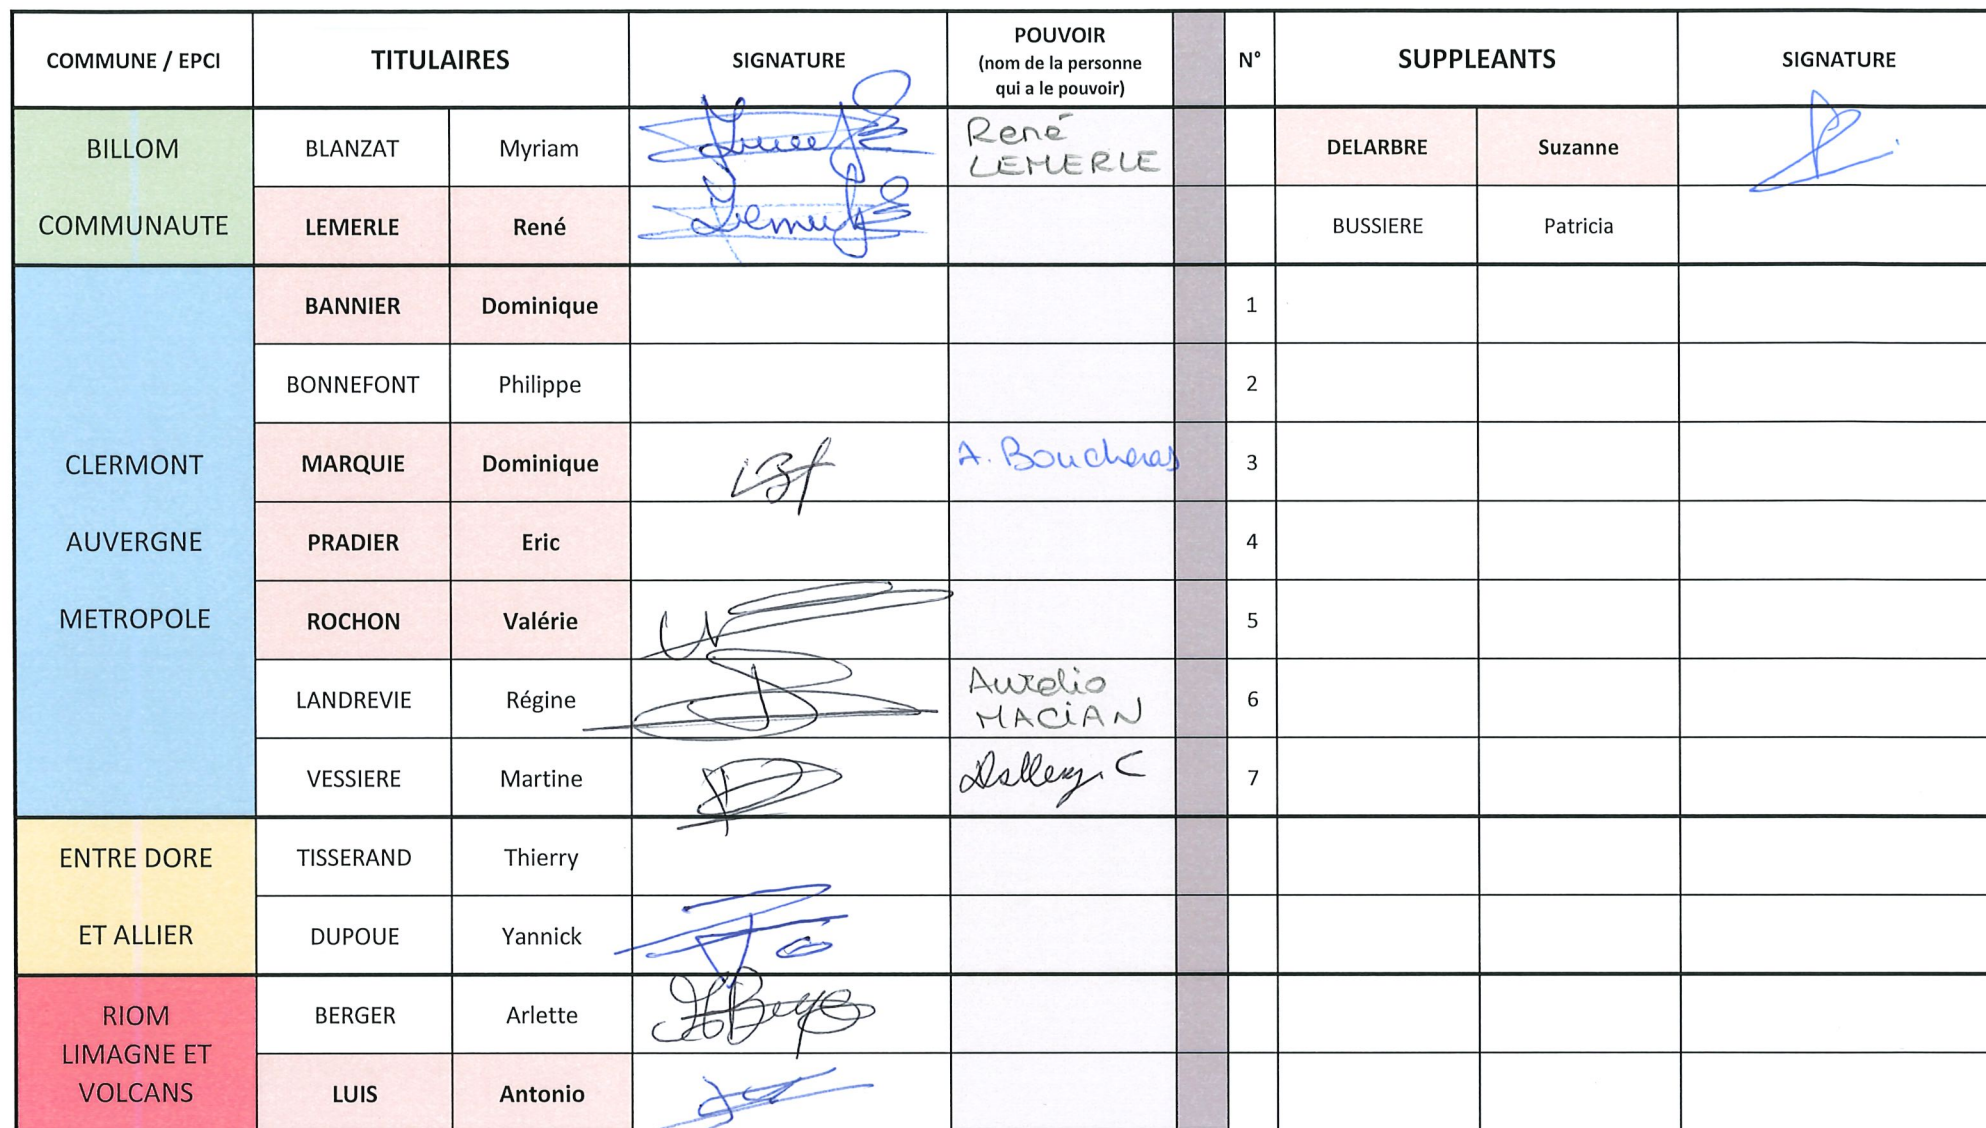 COMMUNE / EPCI TITULAIRES SIGNATURE POUVOIR (nom de la personne qui a le pouvoir) N° SUPPLEANTS SIGNATURE
BILLOM COMMUNAUTE
BLANZAT Myriam René LEMERLE DELARBRE Suzanne
LEMERLE René BUSSIERE Patricia
CLERMONT AUVERGNE METROPOLE
BANNIER Dominique 1
BONNEFONT Philippe 2
MARQUIE Dominique A. Boucheras 3
PRADIER Eric 4
ROCHON Valérie 5
LANDREVIE Régine Aurelio MACIAN 6
VESSIERE Martine C 7
ENTRE DORE ET ALLIER
TISSERAND Thierry
DUPOUE Yannick
RIOM LIMAGNE ET VOLCANS
BERGER Arlette
LUIS Antonio